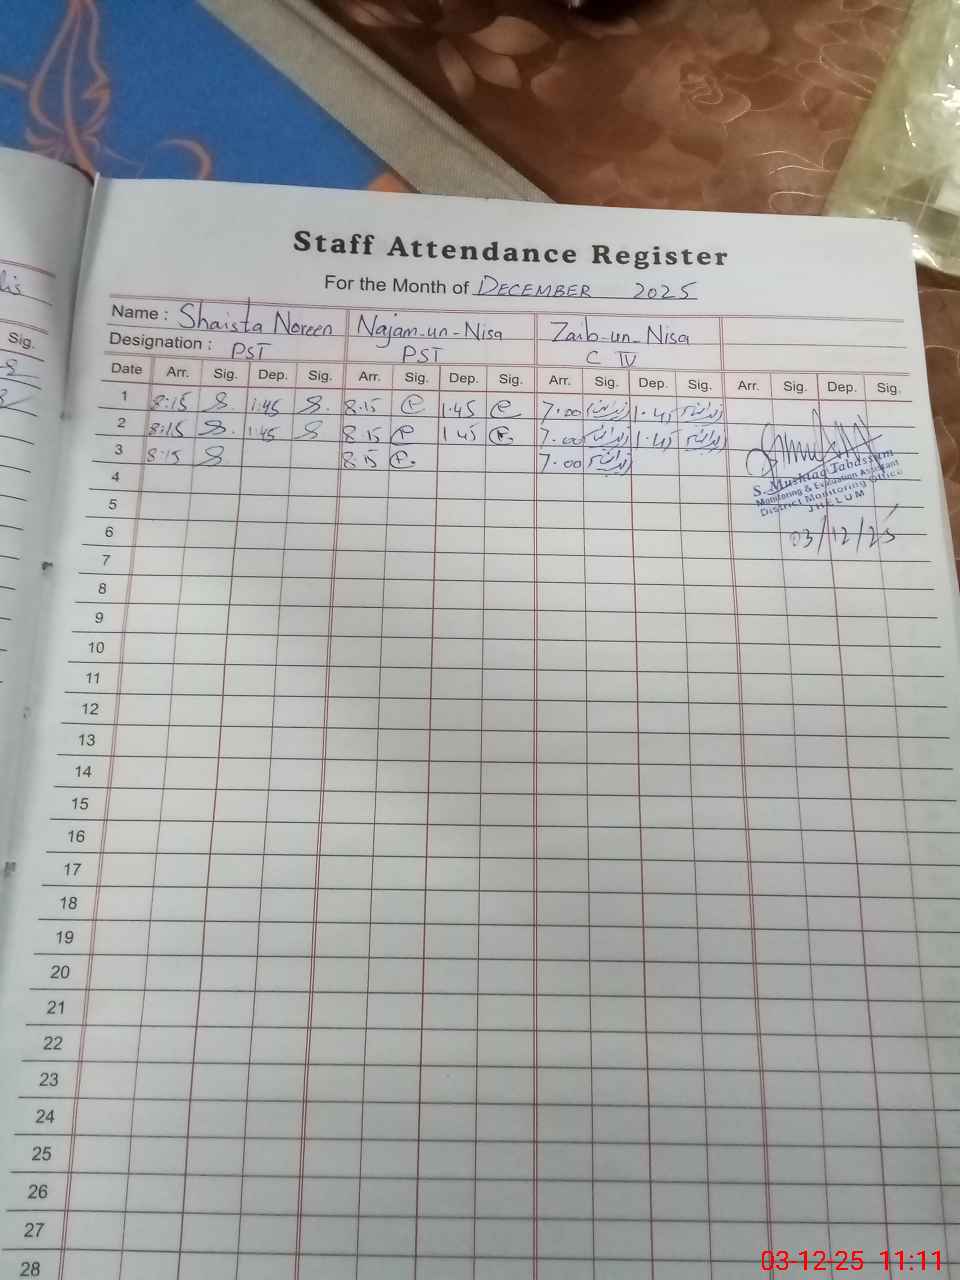 Staff Attendance Register
For the Month of DECEMBER 2025
Name : Shaista Noreen Najam-un-Nisa Zaib-un-Nisa
Designation : PST PST C IV
Date Arr. Sig. Dep. Sig. Arr. Sig. Dep. Sig. Arr. Sig. Dep. Sig. Arr. Sig. Dep. Sig.
1 8:15 S. 1:45 S. 8.15 1.45 7.00 1.45
2 8:15 S. 1:45 S 8 15 1 45 7.00 1.45
3 8:15 S 8 15 7.00
S. Mushtaq Tabassum
Monitoring & Evaluation Assistant
District Monitoring Office
JHELUM
03/12/25
4
5
6
7
8
9
10
11
12
13
14
15
16
17
18
19
20
21
22
23
24
25
26
27
28
Sig.
03-12-25 11:11